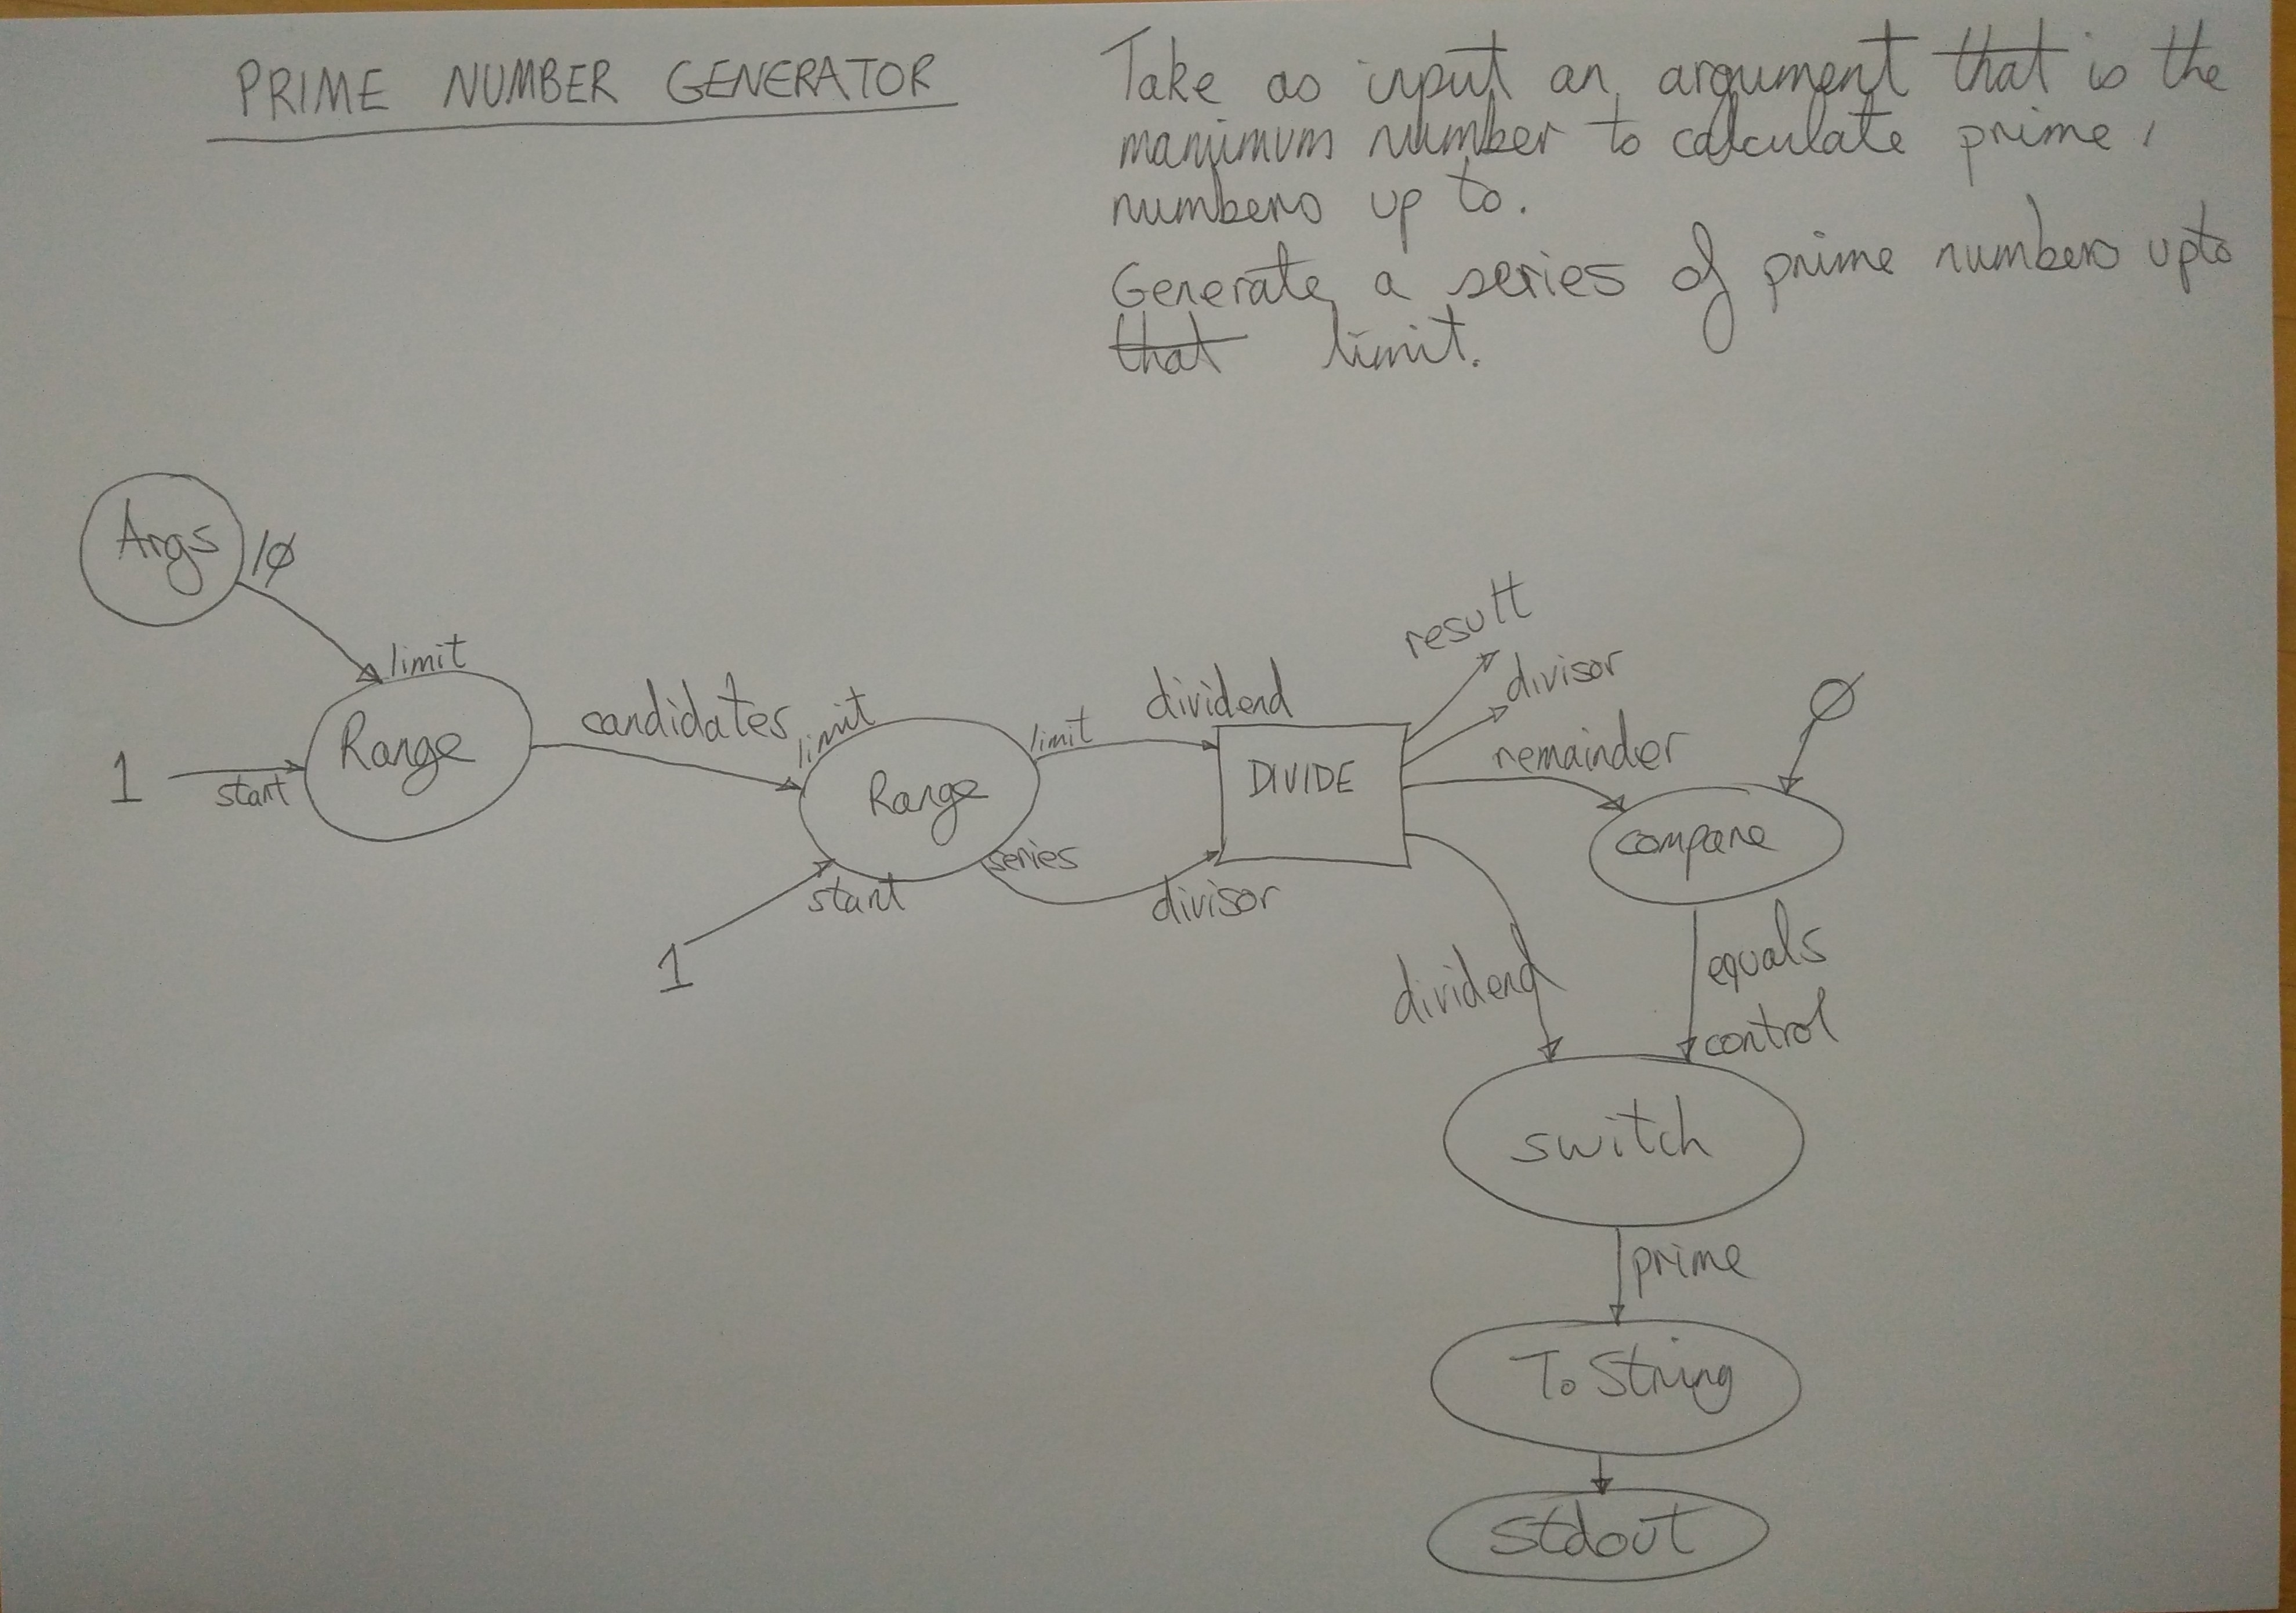 PRIME NUMBER GENERATOR
Take as input an argument that is the
maximum number to calculate prime
numbers up to.
Generate a series of prime numbers upto
that limit.
Args
/0
limit
1
start
Range
candidates
limit
Range
start
1
limit
series
dividend
divisor
DIVIDE
result
divisor
remainder
0
compare
dividend
equals
control
switch
prime
To String
stdout